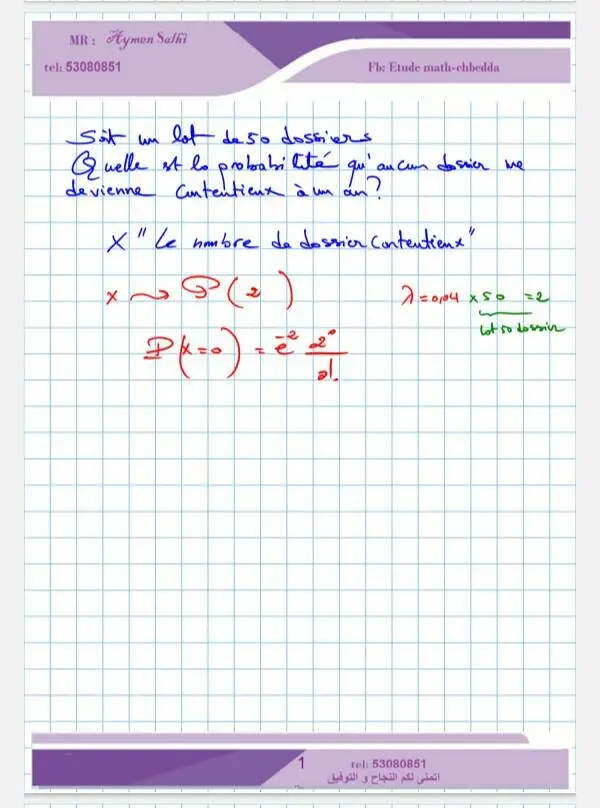 MR : Aymen Salhi
tel: 53080851
Fb: Etude math-chbedda
Soit un lot de 50 dossiers
Quelle est la probabilité qu'aucun dossier ne
devienne contentieux à un an?
X "Le nombre de dossier contentieux"
X ⤳ P(2)
λ = 0,04 × 50 = 2
lot 50 dossier
P(X=0) = e⁻² 2⁰/0!
1
tel: 53080851
اتمنى لكم النجاح و التوفيق